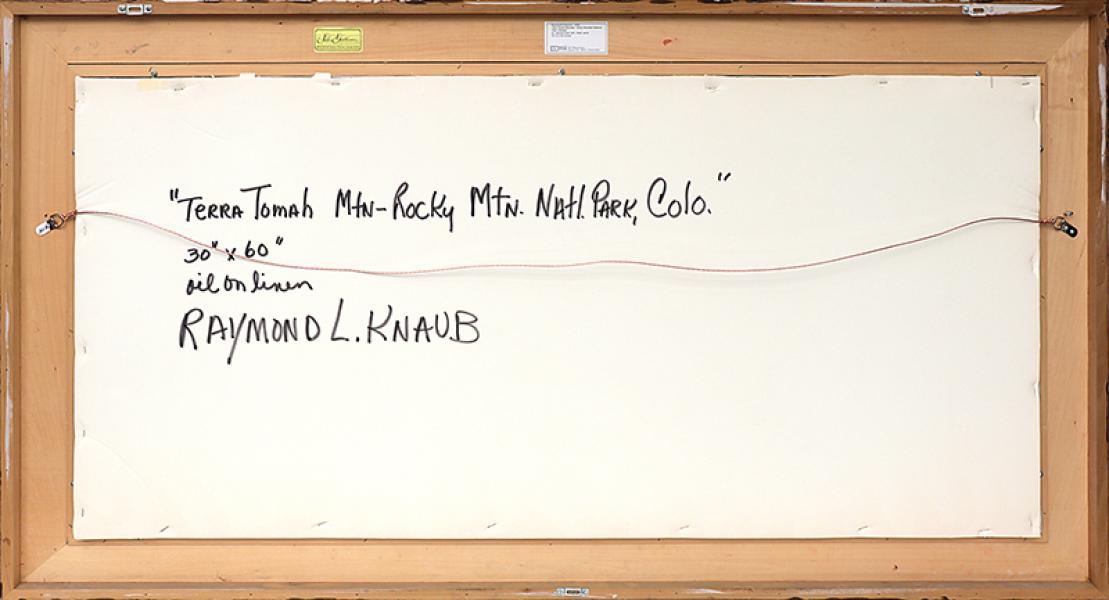 "Terra Tomah Mtn-Rocky Mtn. Natl. Park, Colo."
30" x 60"
oil on linen
RAYMOND L. KNAUB